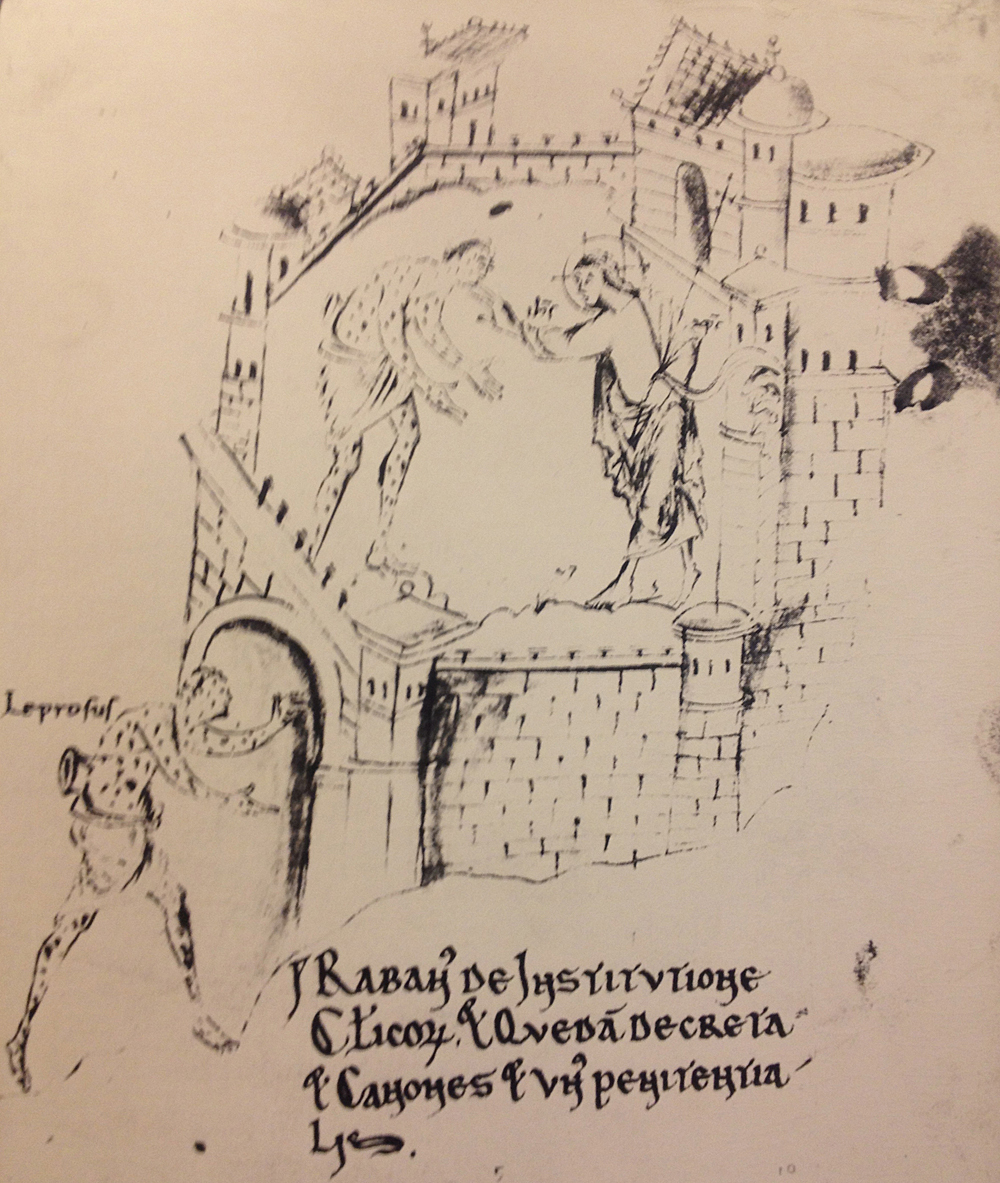 ihc
Leprosus
Rabanꝰ de Institutione
Cl̄icoꝝ. ⁊ Quedā decreta
⁊ Canones ⁊ unꝰ penitentia
lis.
10